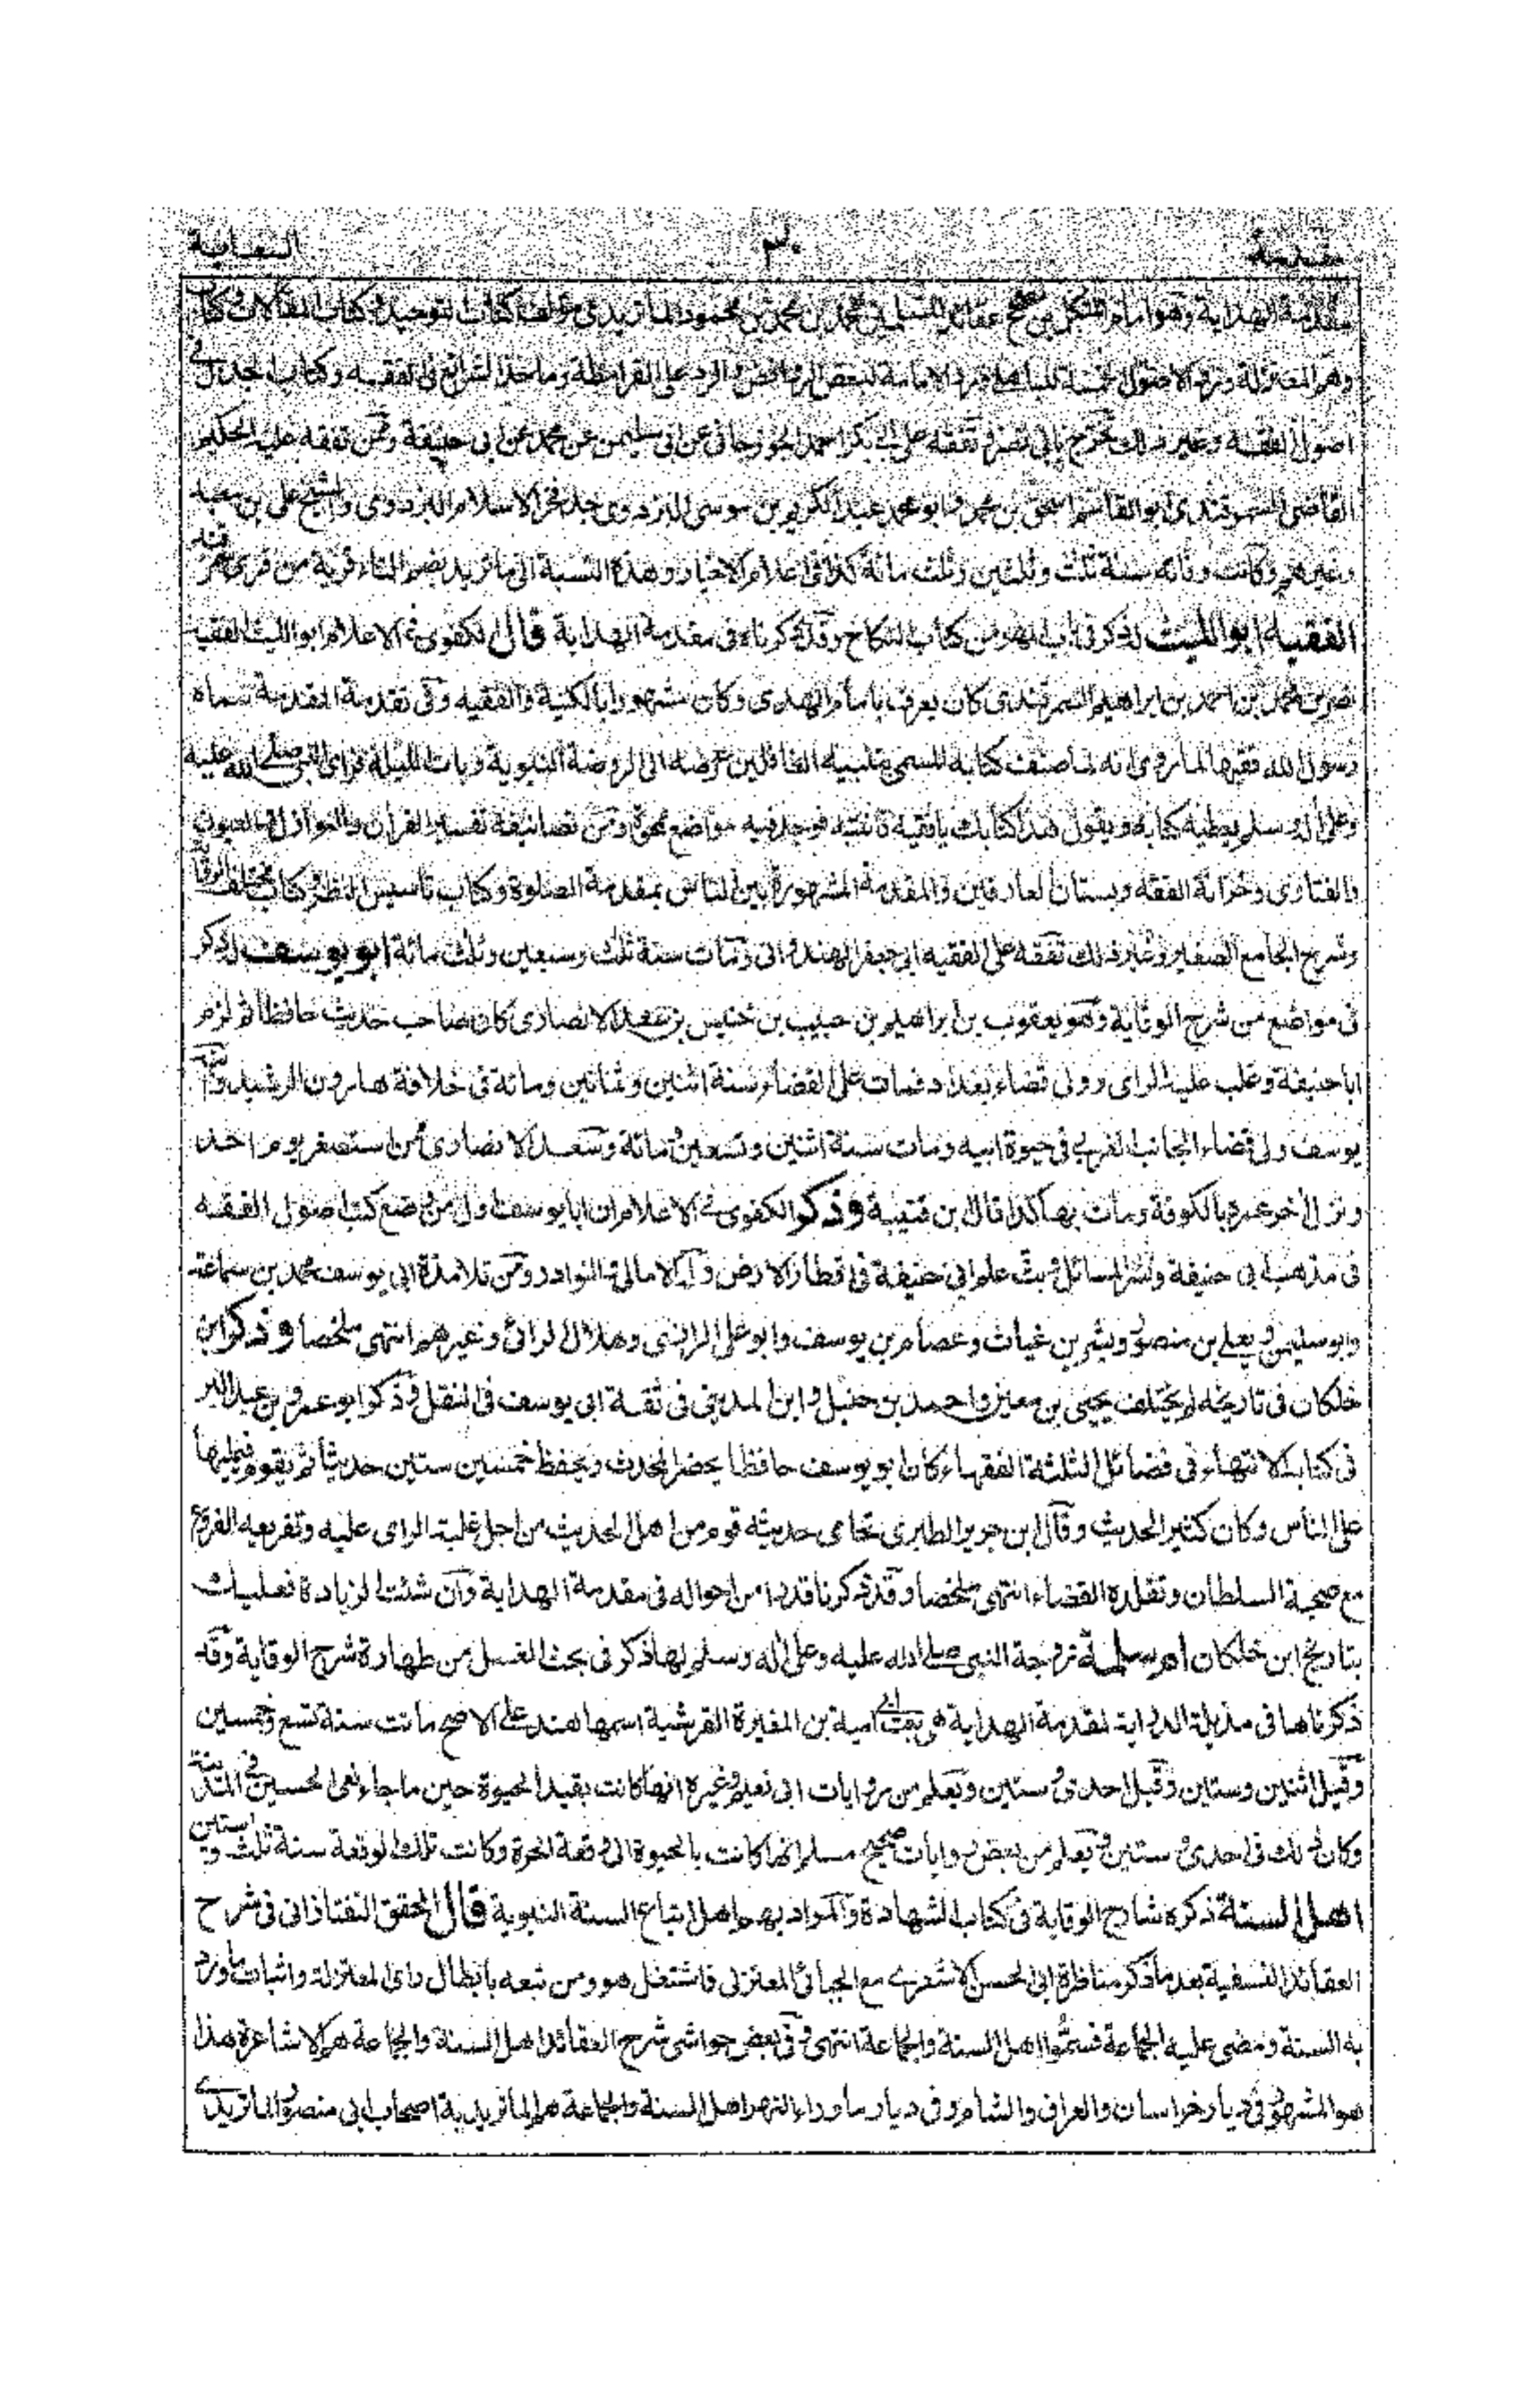 مقدمة ٣٠ السعاية
مقدمة الهداية وهو امام المتكلمين مصحح عقائد المسلمين محمد بن محمد بن محمود الماتريدي مؤلف كتاب التوحيد وكتاب المقالات وكتاب
وهم المعتزلة ورد الاصول الخمسة للباهلى ورد الامامة لبعض الروافض والرد على القرامطة وماخذ الشرائع فى الفقه وكتاب الجدل فى
اصول الفقه وغير ذلك تخرج بابى نصر وتفقه على ابى بكر احمد الجوزجانى عن ابى سليمن عن محمد عن ابى حنيفة وممن تفقه عليه الحكيم
القاضى السمرقندى ابو القاسم اسحق بن محمد وابو محمد عبد الكريم بن موسى البزدوى جد فخر الاسلام البزدوى والشيخ على بن سعيد
وغيرهم وكانت وفاته سنة ثلث وثلثين وثلث مائة كذا فى اعلام الاخيار وهذه النسبة الى ماتريد بضم التاء قرية من قرى سمرقند
الفقيه ابو الليث ذكر فى باب المهر من كتاب النكاح وقد ذكرناه فى مقدمة الهداية قال الكفوى فى الاعلام ابو الليث الفقيه
نصر بن محمد بن احمد بن ابراهيم السمرقندى كان يعرف بامام الهدى وكان مشهورا بالكنية والفقيه وفى تقدمة المقدمة سماه
رسول الله فقيها لما روى انه لما صنف كتابه المسمى بتنبيه الغافلين عرضه الى الروضة النبوية وبات الليلة فراى النبى صلى الله عليه
وعلى اله وسلم يعطيه كتابه ويقول هذا كتابك يا فقيه فانتبه فوجد فيه مواضع محوة ومن تصانيفه تفسير القران والنوازل والعيون
والفتاوى وخزانة الفقه وبستان العارفين والمقدمة المشهورة بين الناس بمقدمة الصلوة وكتاب تاسيس النظر وكتاب مختلف الرواية
وشرح الجامع الصغير وغير ذلك تفقه على الفقيه ابى جعفر الهندوانى ومات سنة ثلث وسبعين وثلث مائة ابو يوسف ذكر
فى مواضع من شرح الوقاية وهو يعقوب بن ابراهيم بن حبيب بن خنيس بن سعد الانصارى كان صاحب حديث حافظا ثم لزم
ابا حنيفة وغلب عليه الراى وولى قضاء بغداد فمات على القضاء سنة اثنين وثمانين ومائة فى خلافة هارون الرشيد وابنه
يوسف ولى قضاء الجانب الغربى فى حيوة ابيه ومات سنة اثنين وتسعين ومائة وسعد الانصارى ممن استصغر يوم احد
ونزل اخر عمره بالكوفة ومات بها كذا قال ابن قتيبة وذكر الكفوى فى الاعلام ان ابا يوسف اول من وضع كتب اصول الفقه
فى مذهب ابى حنيفة ونشر المسائل وبث علم ابى حنيفة فى اقطار الارض وله الامالى والنوادر ومن تلامذة ابى يوسف محمد بن سماعة
وابو سليمن ويعلى بن منصور وبشر بن غياث وعصام بن يوسف وابو على الرازى وهلال الرائى وغيرهم انتهى ملخصا وذكر ابن
خلكان فى تاريخه لم يختلف يحيى بن معين واحمد بن حنبل وابن المدينى فى ثقة ابى يوسف فى النقل وذكر ابو عمرو بن عبد البر
فى كتاب الانتهاء فى فضائل الثلثة الفقهاء كان ابو يوسف حافظا يحضر المحدث ويحفظ خمسين ستين حديثا ثم يقوم فيمليها
على الناس وكان كثير الحديث وقال ابن جرير الطبرى تحامى حديثه قوم من اهل الحديث من اجل غلبة الراى عليه وتفريعه الفروع
مع صحبة السلطان وتقلده القضاء انتهى ملخصا وقد ذكرنا قدرا من احواله فى مقدمة الهداية وان شئت الزيادة فعليك
بتاريخ ابن خلكان ام سلمة زوجة النبى صلى الله عليه وعلى اله وسلم لها ذكر فى بحث الغسل من طهارة شرح الوقاية وقد
ذكرناها فى مذيلة الدراية لمقدمة الهداية هى بنت ابى امية بن المغيرة القرشية اسمها هند على الاصح ماتت سنة تسع وخمسين
وقيل اثنين وستين وقيل احدى وستين ويعلم من روايات ابى نعيم وغيره انها كانت بقيد الحيوة حين ما جاء نعى الحسين فى المدينة
وكان ذلك فى احدى وستين ويعلم من بعض روايات صحيح مسلم انها كانت بالحيوة الى وقعة الحرة وكانت تلك الوقعة سنة ثلث وستين
اهل السنة ذكره شارح الوقاية فى كتاب الشهادة والمراد بهم اهل اتباع السنة النبوية قال المحقق التفتازانى فى شرح
العقائد النسفية بعد ما ذكر مناظرة ابى الحسن الاشعرى مع الجبائى المعتزلى فاشتغل هو ومن تبعه بابطال راى المعتزلة واثبات ما ورد
به السنة ومضى عليه الجماعة فسموا اهل السنة والجماعة انتهى وفى بعض حواشى شرح العقائد اهل السنة والجماعة هم الاشاعرة هذا
هو المشهور فى ديار خراسان والعراق والشام وفى ديار ما وراء النهر اهل السنة والجماعة هم الماتريدية اصحاب ابى منصور الماتريدى